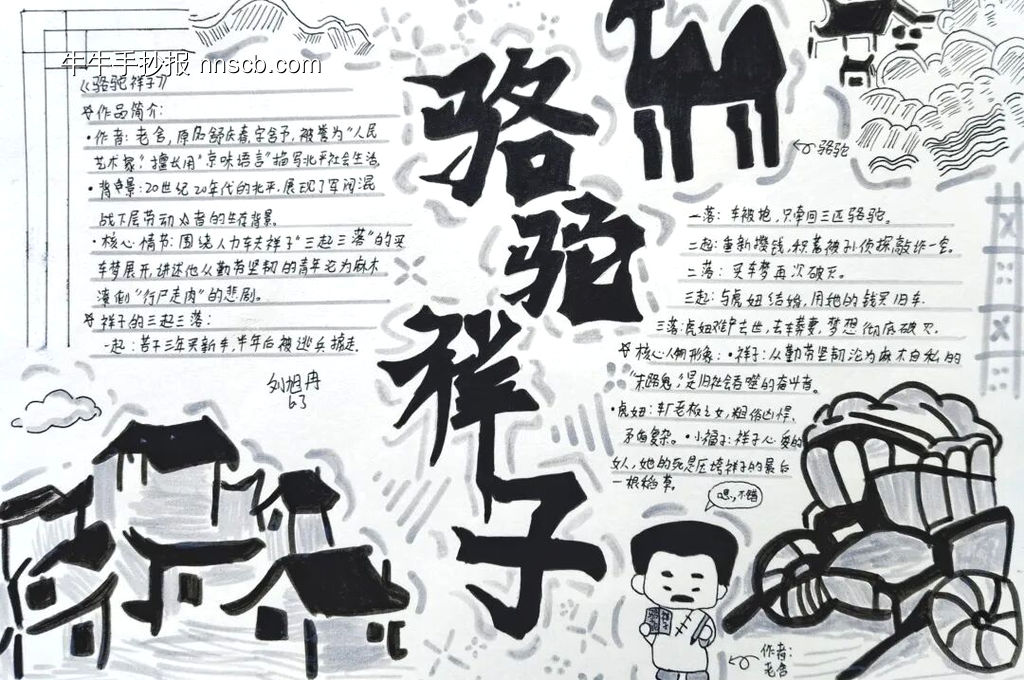 牛牛手抄报 nnscb.com
《骆驼祥子》
作品简介:
·作者:老舍,原名舒庆春,字舍予,被誉为"人民
艺术家",擅长用"京味语言"描写北平社会生活
·背景:20世纪20年代的北平,展现了军阀混
战下层劳动者的生存背景。
·核心情节:围绕人力车夫祥子"三起三落"的买
车梦展开,讲述他从勤劳坚韧的青年沦为麻木
潦倒"行尸走肉"的悲剧。
祥子的三起三落:
一起:苦干三年买新车,半年后被逃兵掳走.
刘旭冉
63
骆驼祥子
骆驼
一落:车被抢,只牵回三匹骆驼。
二起:重新攒钱,积蓄被孙侦探敲诈一空。
二落:买车梦再次破灭。
三起:与虎妞结婚,用她的钱买旧车.
三落:虎妞难产去世,卖车葬妻,梦想彻底破灭.
核心人物形象:·祥子:从勤劳坚韧沦为麻木自私的
"末路鬼",是旧社会吞噬的奋斗者。
·虎妞:车厂老板之女,粗俗凶悍,
·小福子:祥子心爱的
女人,她的死是压垮祥子的最后
一根稻草。
嗯,不错
骆驼祥子
作者:
老舍